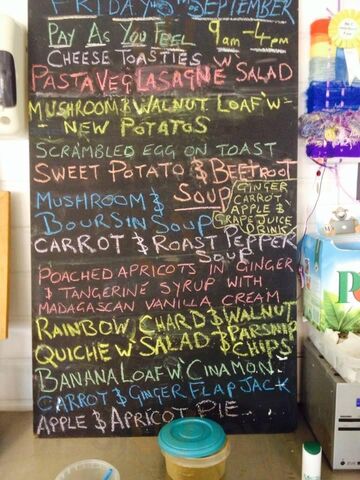 FRIDAY 5th SEPTEMBER
PAY AS YOU FEEL 9am-4pm
CHEESE TOASTIES
PASTA VEG LASAGNE W SALAD
MUSHROOM & WALNUT LOAF W-
NEW POTATOS
SCRAMBLED EGG ON TOAST
SWEET POTATO & BEETROOT
SOUP
MUSHROOM &
BOURSIN SOUP
GINGER
CARROT
APPLE &
GRAPE JUICE
DRINKS
CARROT & ROAST PEPPER
SOUP
POACHED APRICOTS IN GINGER
& TANGERINE SYRUP WITH
MADAGASCAN VANILLA CREAM
RAINBOW CHARD & WALNUT
QUICHE W. SALAD & PARSNIP
CHIPS
BANANA LOAF W CINAMON
CARROT & GINGER FLAP JACK
APPLE & APRICOT PIE
PG